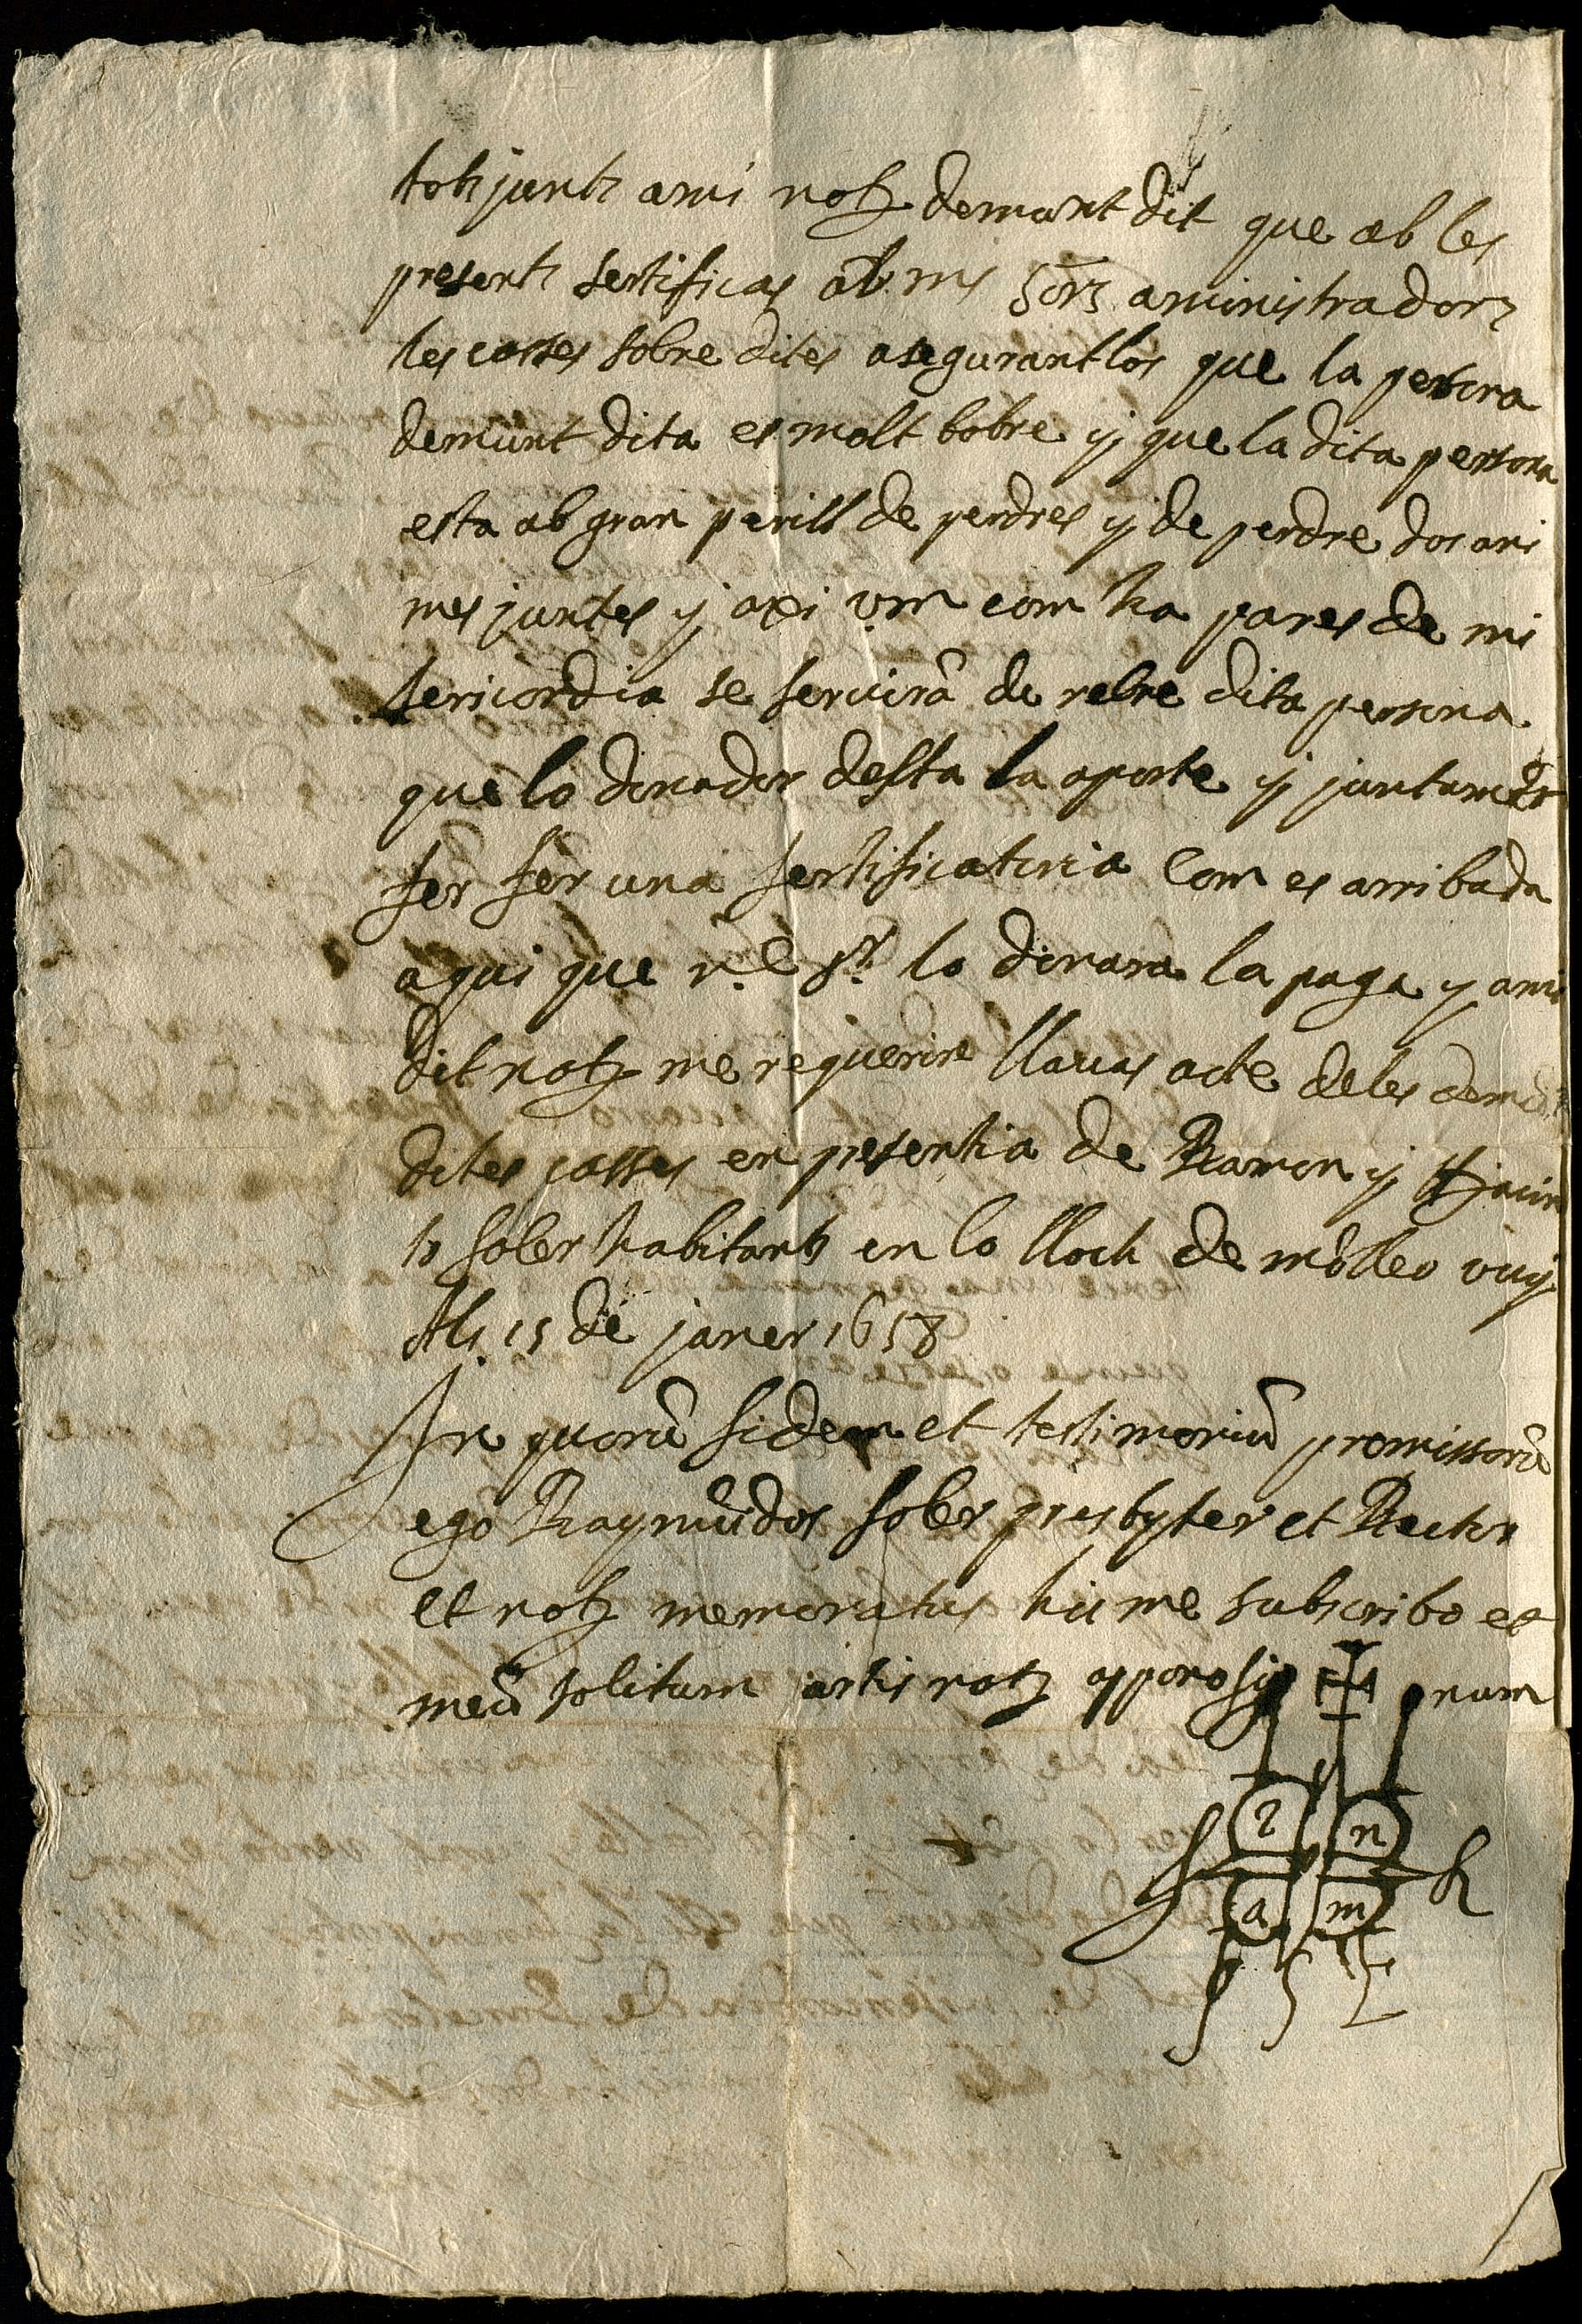 tots junts ami notz demunt dit que ab les
presents sertificas als ms Sors aministradors
les cosses sobre dites asegurantlos que la persona
demunt dita es molt bobre y que la dita persona
esta ab gran perill de perdres y de perdre dos ani
mes juntes y axi vm com ha pares de mi
sericordia se servirà de rebre dita persona
que lo donador desta la aporte y juntamēt
fer fer una sertificatoria Com es arribada
aqui que r.e Sr. lo donara la paga y ami
dit notz me requerire llavas acte deles dem
dites cosses en presentia de Ramon y Hjacin
to soler habitants en lo lloch de mollo vuy
Als 15 de janer 1658
In quorū fidem et testimoniū premissorū
ego Raymūdos soler presbyter et Rector
et notz memoratus hic me subscribo et
meū solitum artis notz appono sig + num
n
a m